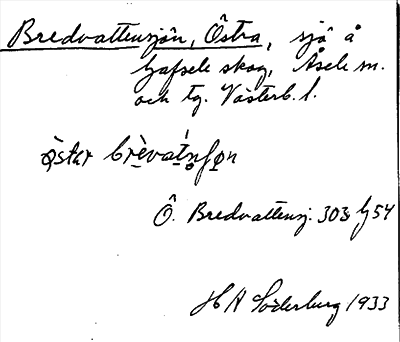 Bredvattensjön, Östra, sjö å
Gafsele skog, Åsele sn.
och tg. Västerb. l.
östər brèvatn̥ʃøn
Ö. Bredvattensj. 303 G 54
H A Söderberg 1933